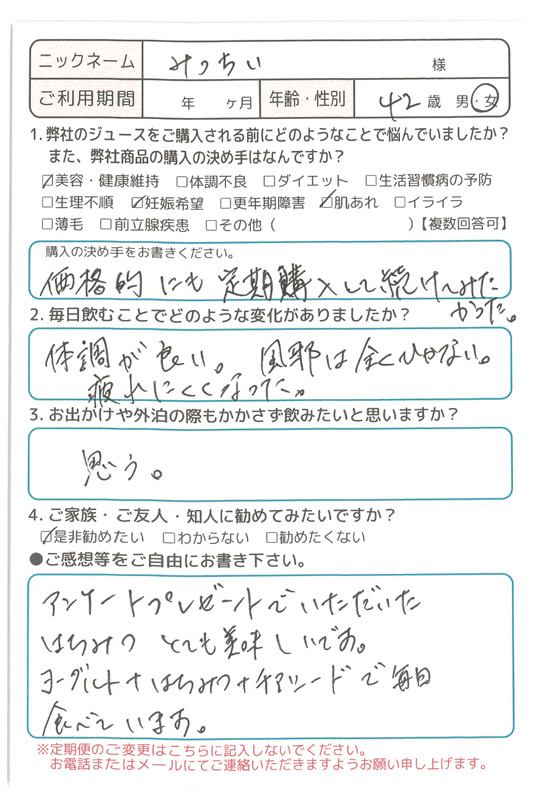 ニックネーム みっちい 様
ご利用期間 年 ヶ月 年齢・性別 42 歳 男・女
1. 弊社のジュースをご購入される前にどのようなことで悩んでいましたか?
また、弊社商品の購入の決め手はなんですか?
☑美容・健康維持 □体調不良 □ダイエット □生活習慣病の予防
□生理不順 ☑妊娠希望 □更年期障害 ☑肌あれ □イライラ
□薄毛 □前立腺疾患 □その他( )【複数回答可】
購入の決め手をお書きください。
価格的にも定期購入して続けてみた
かった。
2. 毎日飲むことでどのような変化がありましたか?
体調が良い。風邪は全くひかない。
疲れにくくなった。
3. お出かけや外泊の際もかかさず飲みたいと思いますか?
思う。
4. ご家族・ご友人・知人に勧めてみたいですか?
☑是非勧めたい □わからない □勧めたくない
●ご感想等をご自由にお書き下さい。
アンケートプレゼントでいただいた
はちみつ とても美味しいです。
ヨーグルト+はちみつ+チアシードで毎日
食べています。
※定期便のご変更はこちらに記入しないでください。
お電話またはメールにてご連絡いただきますようお願い申し上げます。